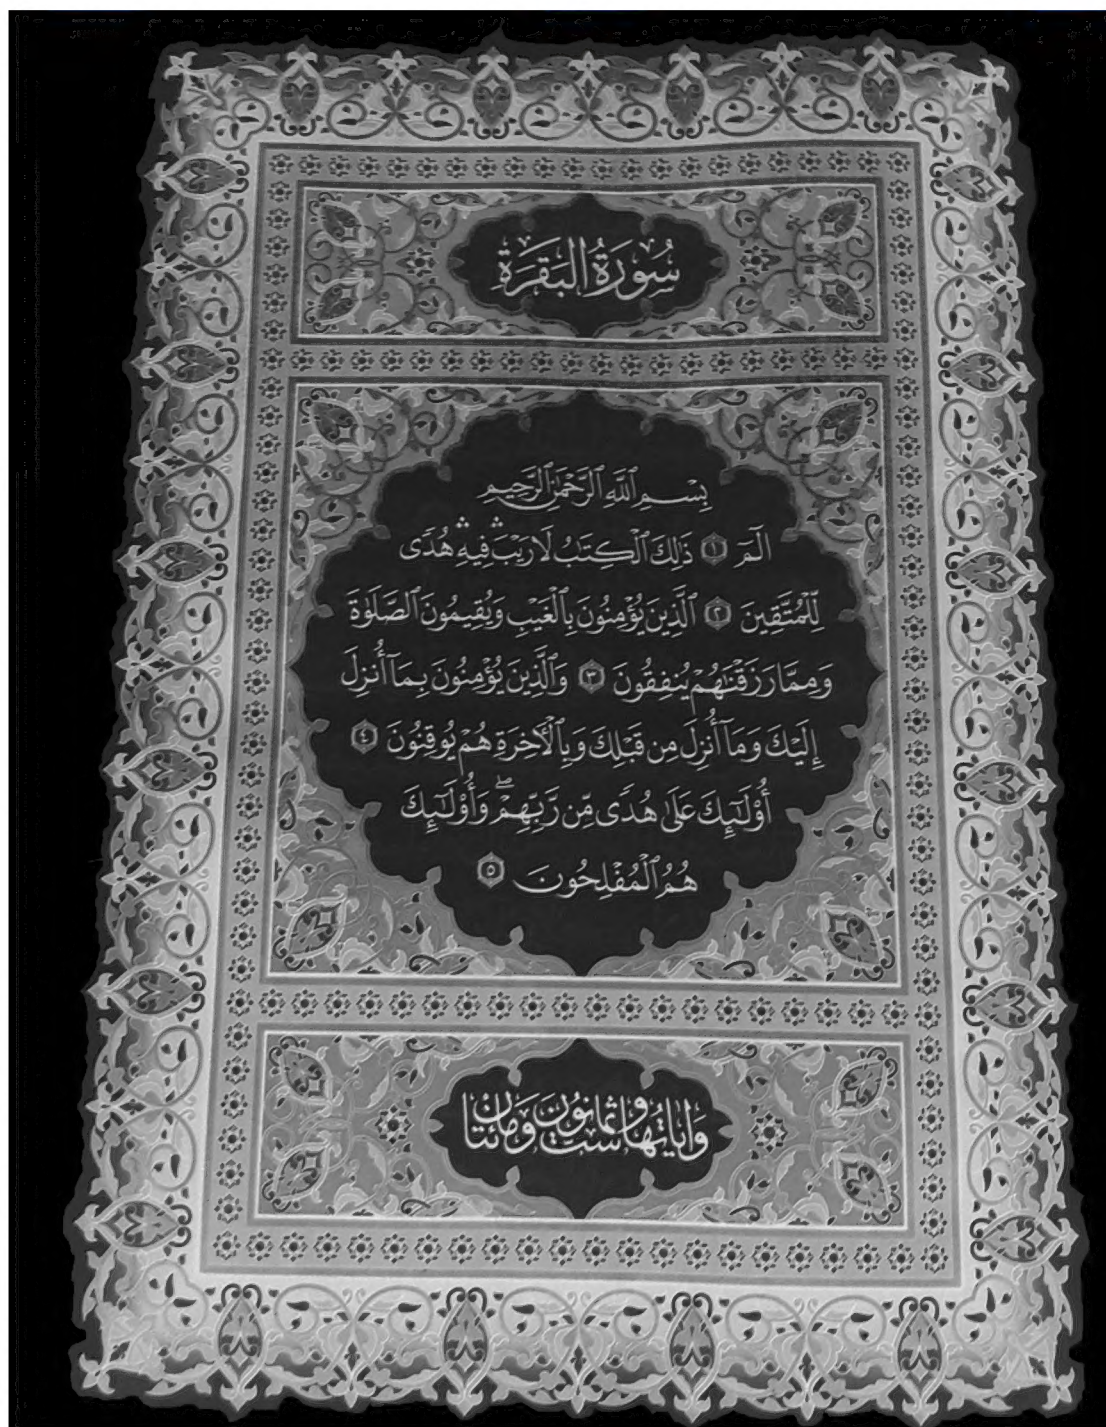 سُورَةُ البَقَرَةِ
بِسْمِ ٱللَّهِ ٱلرَّحْمَٰنِ ٱلرَّحِيمِ
الٓمٓ ۝١ ذَٰلِكَ ٱلْكِتَٰبُ لَا رَيْبَ ۛ فِيهِ ۛ هُدًى
لِّلْمُتَّقِينَ ۝٢ ٱلَّذِينَ يُؤْمِنُونَ بِٱلْغَيْبِ وَيُقِيمُونَ ٱلصَّلَوٰةَ
وَمِمَّا رَزَقْنَٰهُمْ يُنفِقُونَ ۝٣ وَٱلَّذِينَ يُؤْمِنُونَ بِمَآ أُنزِلَ
إِلَيْكَ وَمَآ أُنزِلَ مِن قَبْلِكَ وَبِٱلْأَخِرَةِ هُمْ يُوقِنُونَ ۝٤
أُو۟لَٰٓئِكَ عَلَىٰ هُدًى مِّن رَّبِّهِمْ ۖ وَأُو۟لَٰٓئِكَ
هُمُ ٱلْمُفْلِحُونَ ۝٥
وَاياتُها سِتٌّ وَثمانُونَ وَمائتانْ